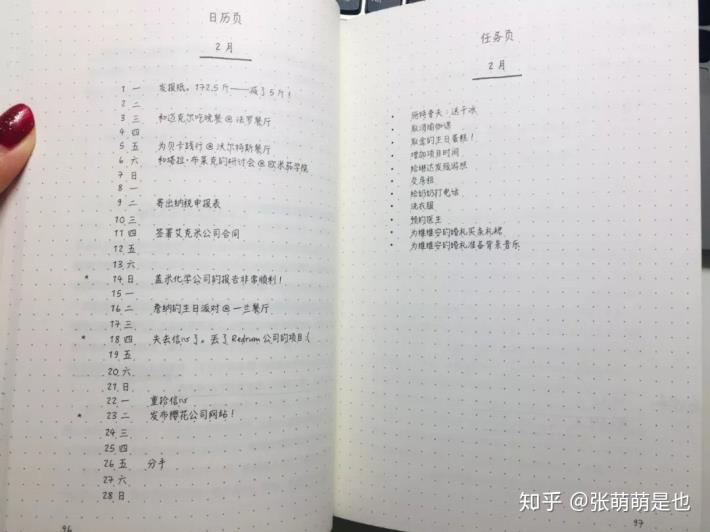 日历页
2月
1 一 发报纸。172.5斤——减了5斤!
2 二
3 三 和迈克尔吃晚餐@法罗餐厅
4 四
5 五 为贝卡践行@沃尔特斯餐厅
6 六 和塔拉·布莱克的研讨会@欧米茄学院
7 日
8 一
9 二 寄出纳税申报表
10 三
11 四 签署艾克米公司合同
12 五
13 六
* 14 日 盖米化学公司的报告非常顺利!
15 一
16 二 詹纳的生日派对@一兰餐厅
17 三
* 18 四 失去信心了。丢了Redrum公司的项目:(
19 五
20 六
21 日
22 一 重拾信心
* 23 二 发布樱花公司网站!
24 三
25 四
26 五 分手
27 六
28 日
96
任务页
2月
• 施特普夫:送干冰
• 取消瑜伽课
• 取盒的生日蛋糕!
• 增加项目时间
• 给琳达发短消息
• 交房租
• 给奶奶打电话
• 洗衣服
• 预约医生
• 为维维安的婚礼买条礼裙
• 为维维安的婚礼准备背景音乐
97
知乎 @张萌萌是也